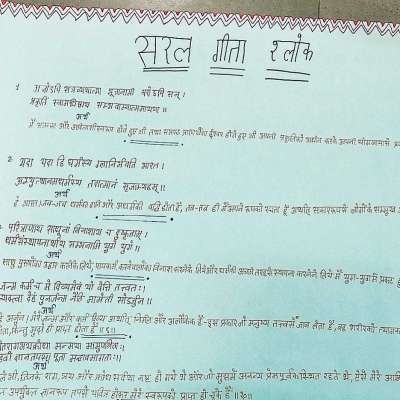 सरल गीता श्लोक
1 अजोऽपि सन्नव्ययात्मा भूतानामी श्वरोऽपि सन् ।
प्रकृतिं स्वामधिष्ठाय सम्भवाम्यात्ममायया ॥
अर्थ
मैं अजन्मा और अविनाशीस्वरूप होते हुए भी तथा समस्त प्राणियोंका ईश्वर होते हुए भी अपनी प्रकृतिको अधीन करके अपनी योगमायासे
2. यदा यदा हि धर्मस्य ग्लानिर्भवति भारत ।
अभ्युत्थानमधर्मस्य तदात्मानं सृजाम्यहम् ॥
अर्थ
हे भारत ! जब-जब धर्मकी हानि और अधर्मकी वृद्धि होती है, तब-तब ही मैं अपने रूपको रचता हूँ अर्थात् साकाररूपसे लोगोंके सम्मुख
परित्राणाय साधूनां विनाशाय च दुष्कृताम् ।
धर्मसंस्थापनार्थाय सम्भवामि युगे युगे ॥
अर्थ
साधु पुरुषोंका उद्धार करनेके लिये, पापकर्म करनेवालोंका विनाश करनेके लिये और धर्मकी अच्छी तरहसे स्थापना करनेके लिये मैं युग-युगमें प्रकट
जन्म कर्म च मे दिव्यमेवं यो वेत्ति तत्त्वतः ।
त्यक्त्वा देहं पुनर्जन्म नैति मामेति सोऽर्जुन ॥
अर्थ
हे अर्जुन ! मेरे जन्म और कर्म दिव्य अर्थात् निर्मल और अलौकिक हैं - इस प्रकार जो मनुष्य तत्त्वसे जान लेता है, वह शरीरको
किन्तु मुझे ही प्राप्त होता है ॥९॥
वीतरागभयक्रोधा मन्मया मामुपाश्रिताः ।
बहवो ज्ञानतपसा पूता मद्भावमागताः ॥
भी, जिनके राग, भय और क्रोध सर्वथा नष्ट हो गये थे और जो मुझमें अनन्य प्रेमपूर्वक स्थित रहते थे, ऐसे मेरे
उपर्युक्त ज्ञानरूप तपसे पवित्र होकर मेरे स्वरूपको प्राप्त हो चुके हैं ॥१०॥